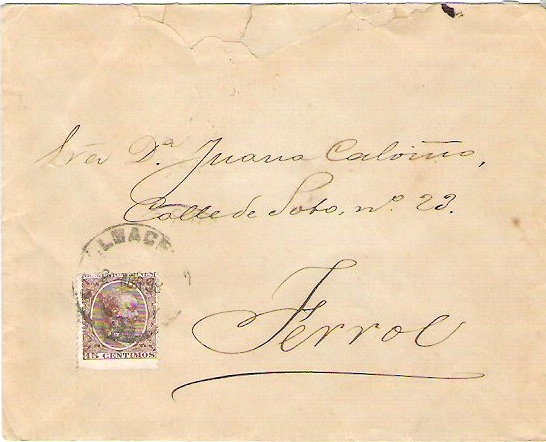 Sra Dª Juana Caloiño,
Calle de Soto, nº 23.
Ferrol
ALBACE
15 CENTIMOS